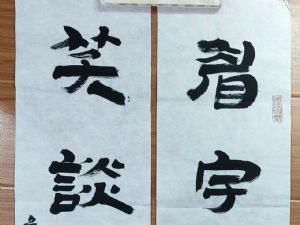 眉宇
笑談